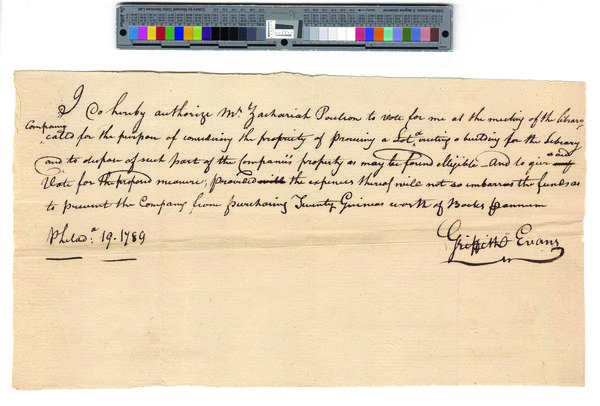 I do hereby authorize Mr. Zachariah Poulson to vote for me at the meeting of the Library
Company
called for the purpose of considering the propriety of Procuring a Lot & erecting a building for the Library
and to dispose of such part of the Companies property as may be found elligible and to give
Vote for the proposed measure; provided the expences thereof will not so embarrass the funds as
to prevent the Company from purchasing Twenty Guineas worth of Books annum
Philada. 19. 1789
Griffith Evans